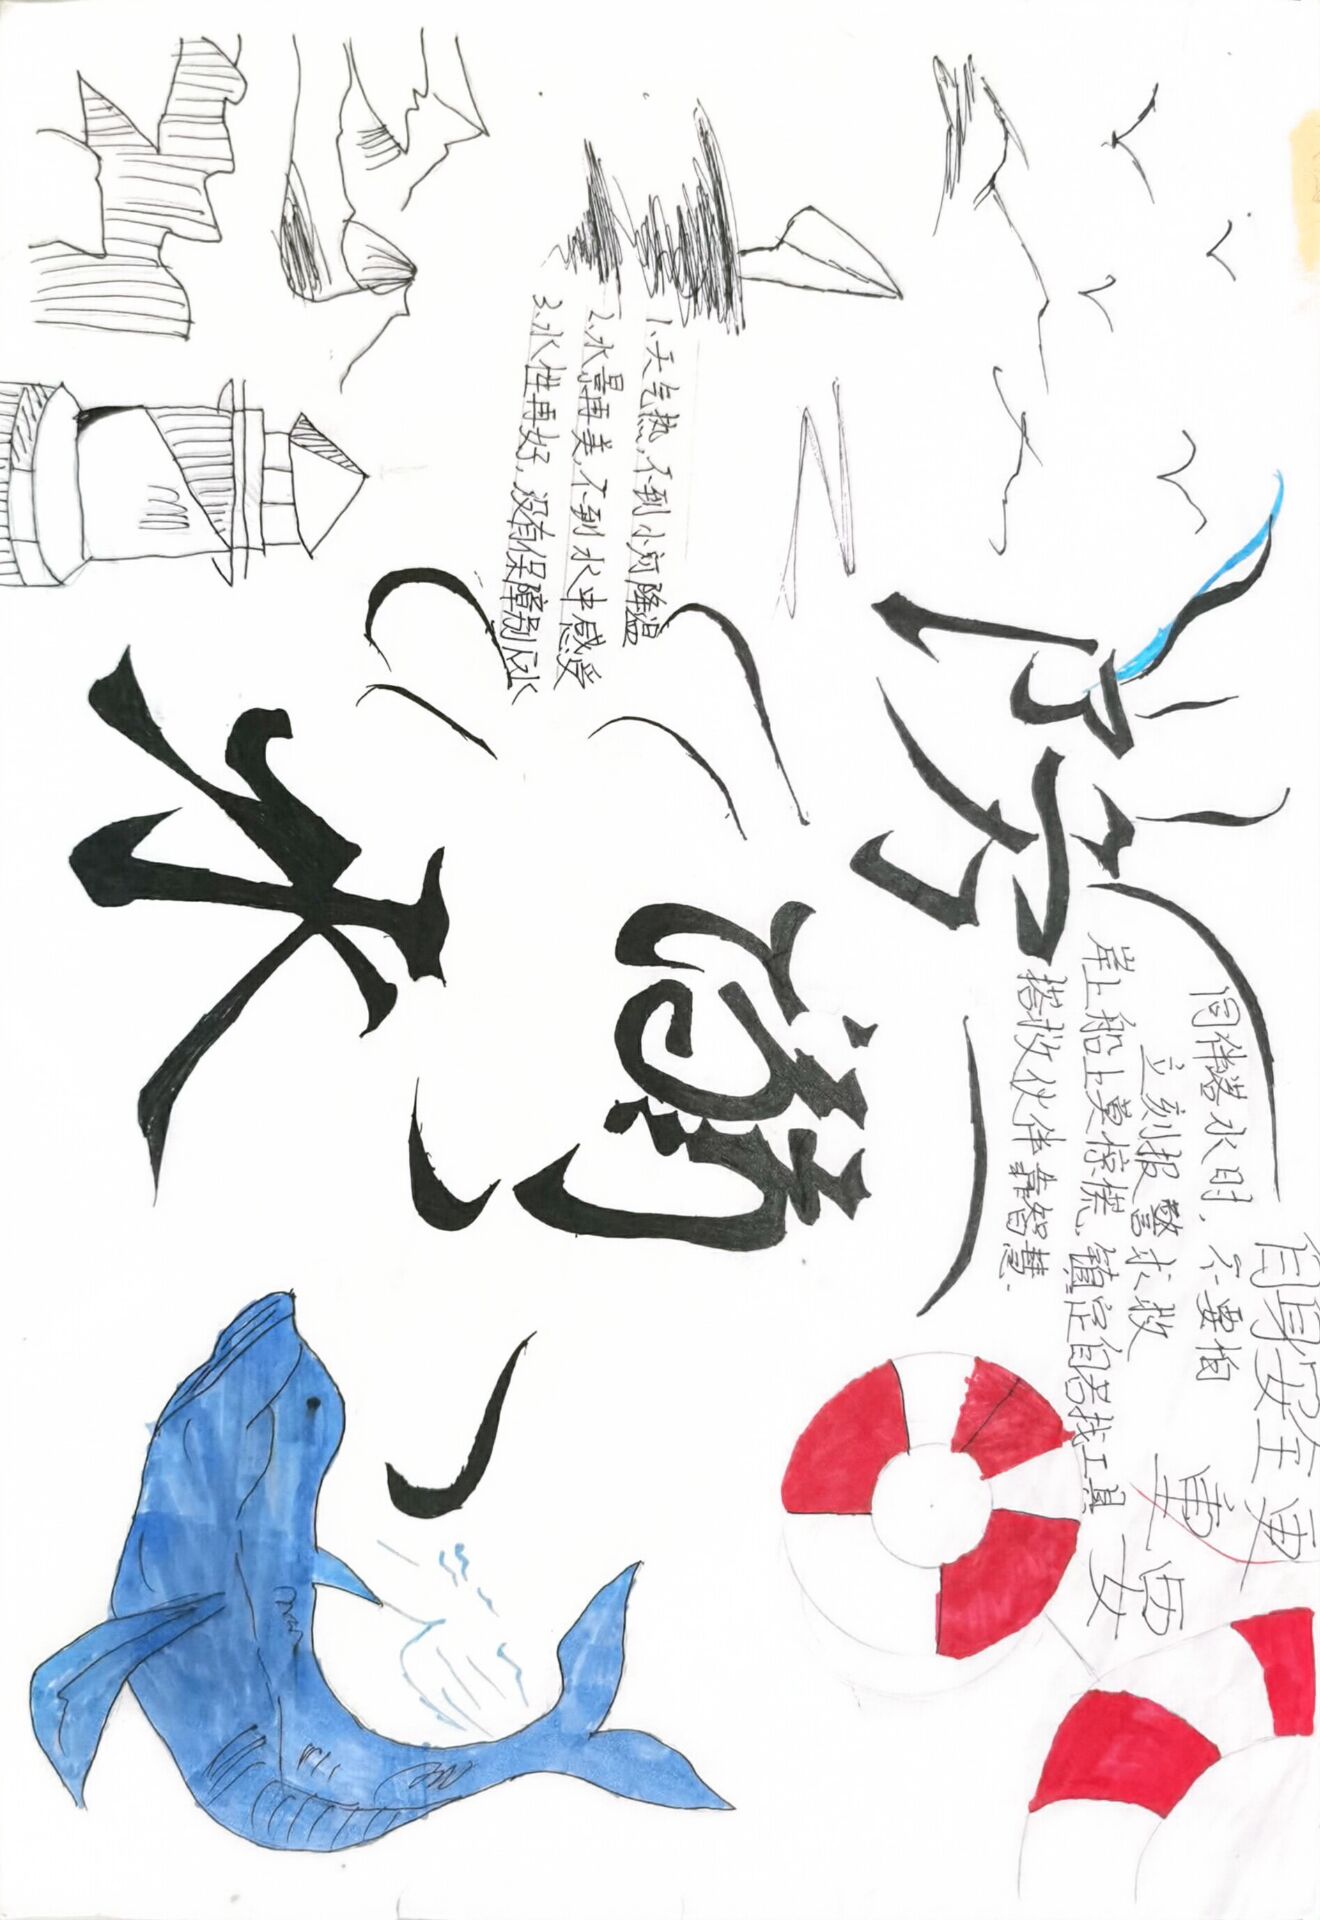 防溺水
同伴落水时,不要怕
立刻报警求救
岸上船上莫惊慌,镇定自若找工具
搭救伙伴靠智慧.
自身安全更
重要
1.天气热,不到小河降温
2.水景再美,不到水中感受
3.水性再好,没有保障别应水